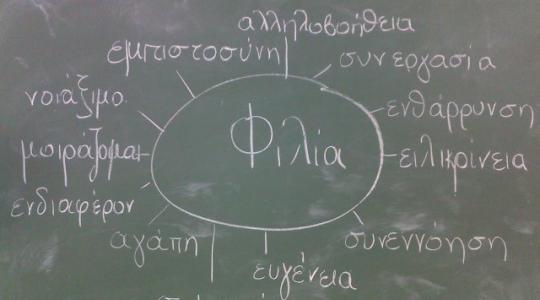 αλληλοβοήθεια
εμπιστοσύνη
συνεργασία
νοιάξιμο
ενθάρρυνση
Φιλία
μοιράζομαι
ειλικρίνεια
ενδιαφέρον
αγάπη
συνεννόηση
ευγένεια